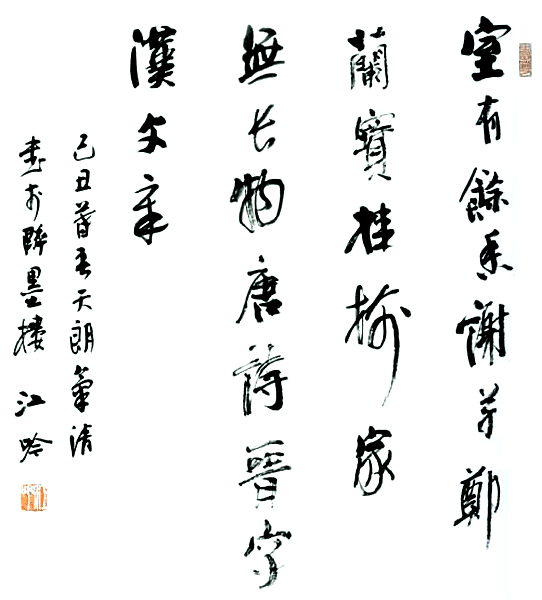 室有餘香謝草鄭
蘭竇桂樹家
無长物唐詩晉字
漢文章
己丑暮春天朗氣清
書於醉墨樓 江吟